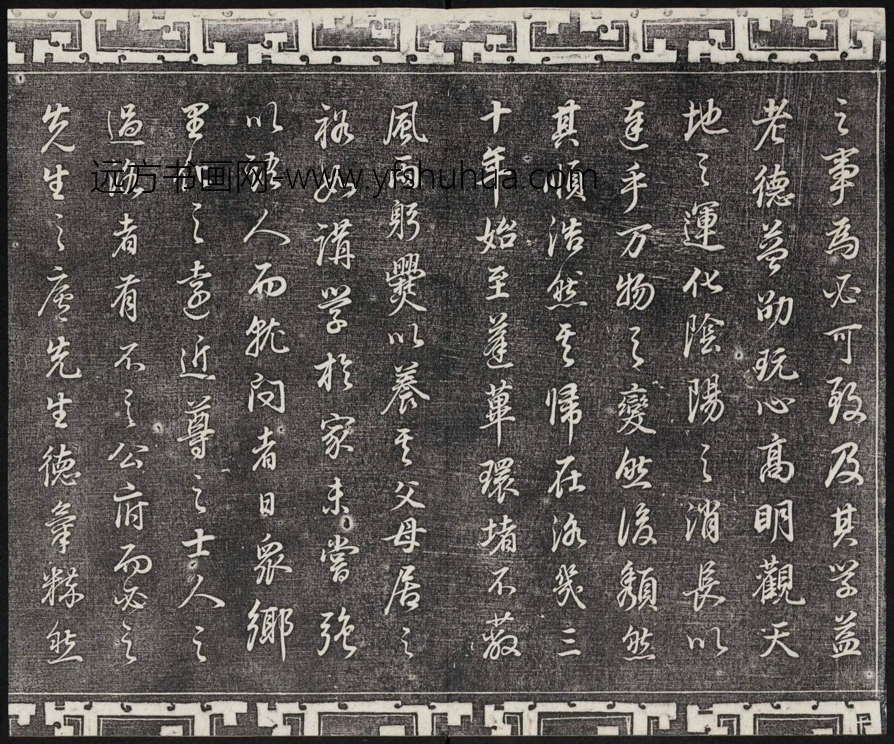 之事為必可致及其学益
老德益劭玩心髙明觀天
地之運化陰陽之消長以
達乎万物之變然後頹然
其順浩然其歸在洛幾三
十年始至蓬蓽環堵不蔽
風雨躬爨以養其父母居之
裕如講学於家未嘗强
以語人而就问者日衆鄉
里化之遠近尊之士人之
過洛者有不之公府而必之
先生之廬先生德氣粹然
远方书画网-www.yfshuhua.com